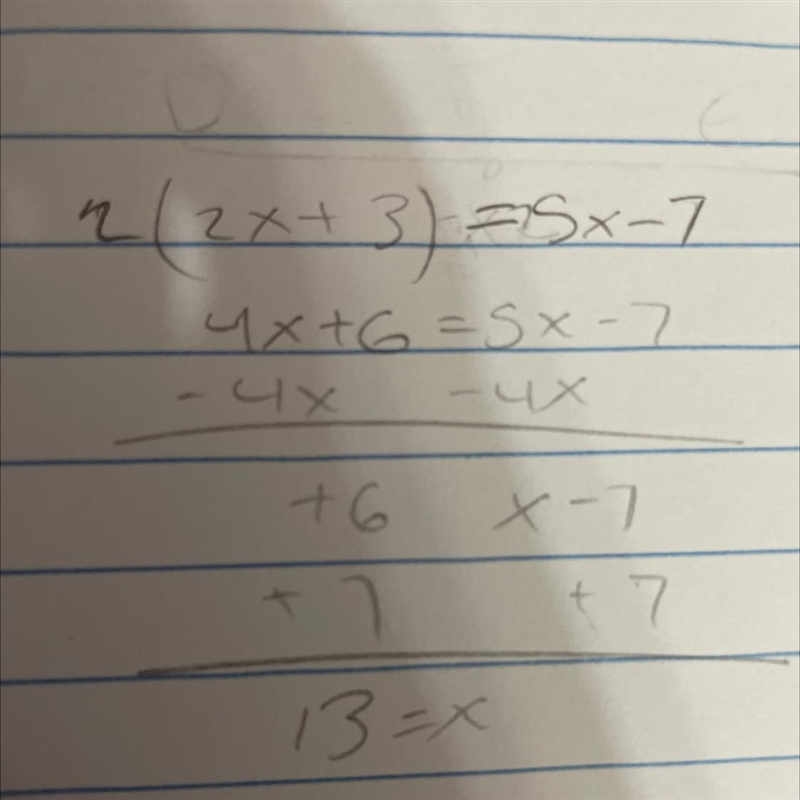 2(2x+3)=5x-7
4x+6=5x-7
-4x -4x
+6 x-7
+7 +7
13=x